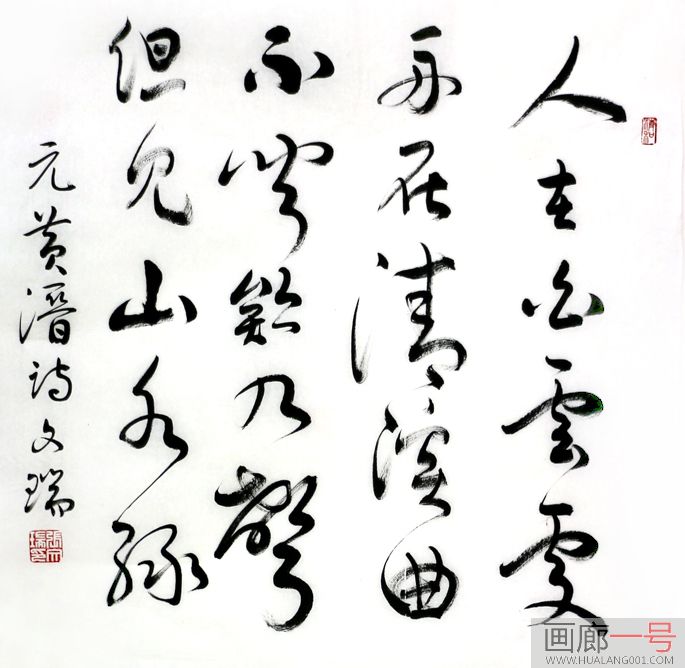 人在白雲處
舟在清溪曲
不聞欸乃聲
但見山水綠
元黃溍詩文瑞
張文瑞印
画廊一号
WWW.HUALANG001.COM